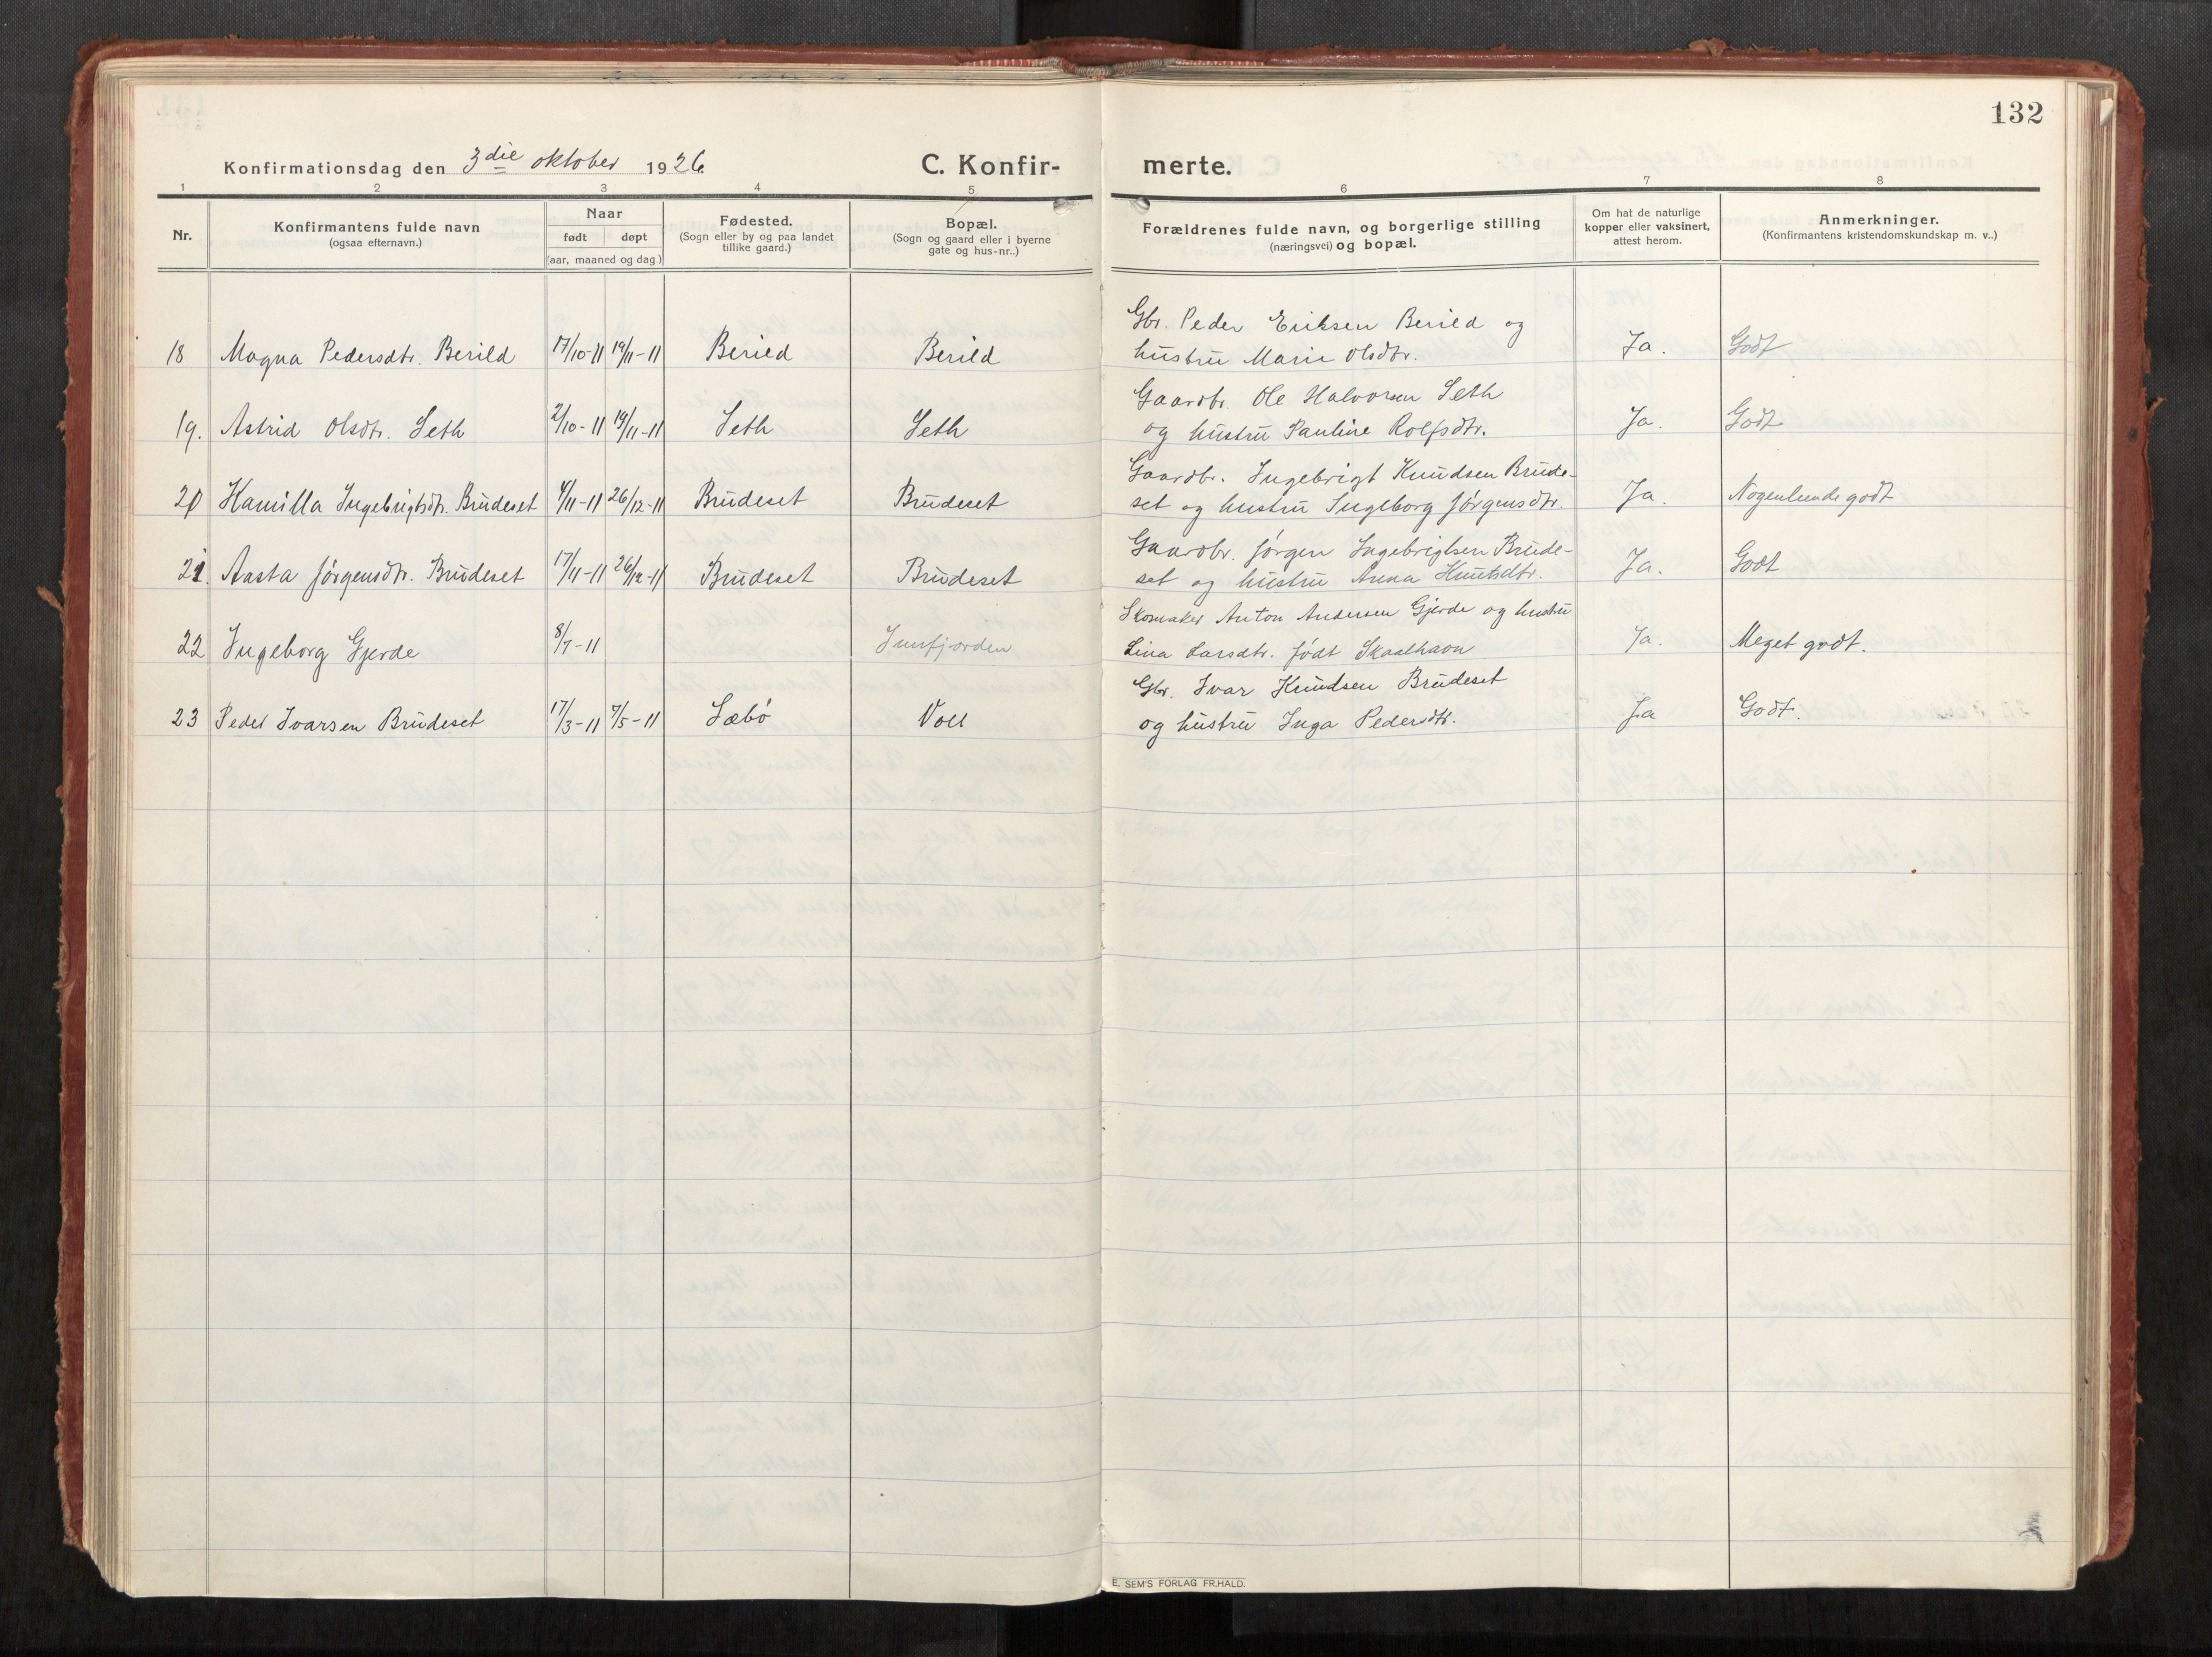 132
Konfirmationsdag den 3die oktober 1926.
C. Konfirmerte.
1 2 3 4 5 6 7 8
Nr.
Konfirmantens fulde navn
(ogsaa efternavn.)
Naar
født døpt
(aar, maaned og dag)
Fødested.
(Sogn eller by og paa landet
tillike gaard.)
Bopæl.
(Sogn og gaard eller i byerne
gate og hus-nr..)
Forældrenes fulde navn, og borgerlige stilling
(næringsvei) og bopæl.
Om hat de naturlige
kopper eller vaksinert,
attest herom.
Anmerkninger.
(Konfirmantens kristendomskundskap m. v..)
Gbr. Peder Eriksen Berild og
18 Magna Pedersdtr. Berild 17/10-11 19/11-11 Berild Berild hustru Marie Olsdtr. Ja. Godt
Gaardbr. Ole Halvorsen Seth
19. Astrid Olsdtr. Seth 2/10-11 19/11-11 Seth Seth og hustru Pauline Rolfsdtr. Ja. Godt
Gaardbr. Ingebrigt Knudsen Brude-
20 Hamilla Ingebrigtsdtr. Brudeset 4/11-11 26/12-11 Brudeset Brudeset set og hustru Ingeborg Jørgensdtr. Ja. Nogenlunde godt
Gaardbr. Jørgen Ingebrigtsen Brude-
21. Aasta Jørgensdtr. Brudeset 17/11-11 26/12-11 Brudeset Brudeset set og hustru Anna Knutsdtr. Ja. Godt
Skomaker Anton Andersen Gjerde og hustru
22 Ingeborg Gjerde 8/7-11 Innfjorden Lina Larsdtr. født Skaalhavn Ja. Meget godt.
Gbr. Ivar Knudsen Brudeset
23 Peder Ivarsen Brudeset 17/3-11 7/5-11 Sæbø Voll og hustru Inga Pedersdtr. Ja Godt.
E, SEM'S FORLAG FR.HALD.